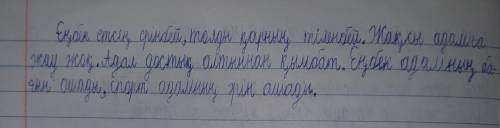 Еңбек етсең ерінбей, тояды қарның тіленбей. Жақсы адамға
жау жоқ. Адал достық алтыннан қымбат. Еңбек адамның ба-
ғын ашады, спорт адамның
ашады.